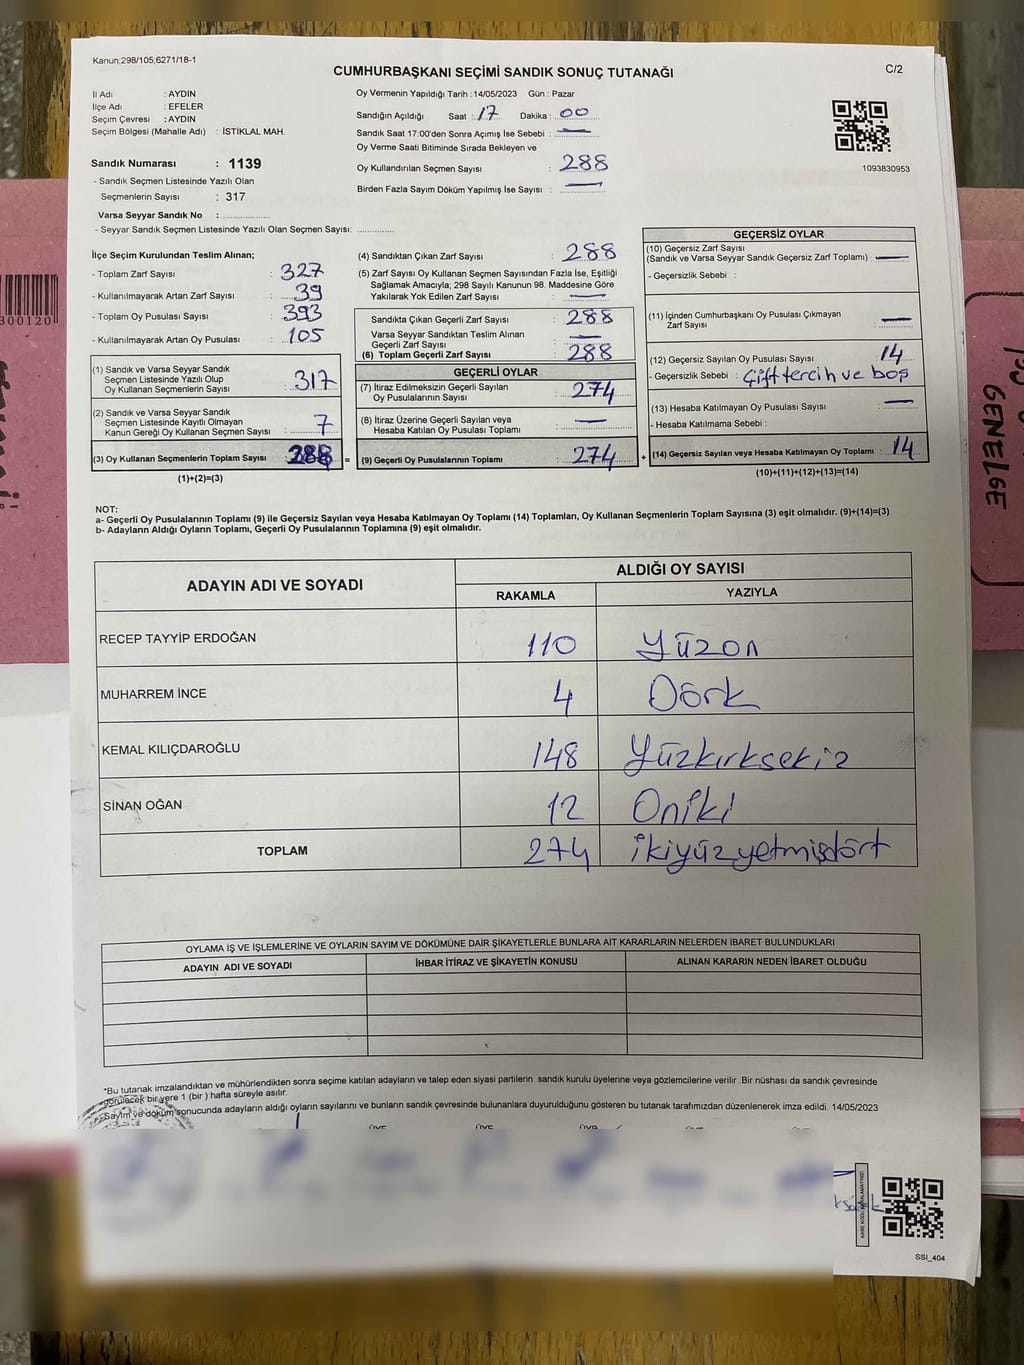 Kanun;298/105,6271/18-1
CUMHURBAŞKANI SEÇİMİ SANDIK SONUÇ TUTANAĞI
C/2
İl Adı : AYDIN
İlçe Adı : EFELER
Seçim Çevresi : AYDIN
Seçim Bölgesi (Mahalle Adı) : İSTİKLAL MAH.
Sandık Numarası : 1139
- Sandık Seçmen Listesinde Yazılı Olan
Seçmenlerin Sayısı : 317
Varsa Seyyar Sandık No : ...............
- Seyyar Sandık Seçmen Listesinde Yazılı Olan Seçmen Sayısı: ............
Oy Vermenin Yapıldığı Tarih : 14/05/2023 Gün : Pazar
Sandığın Açıldığı Saat : 17 Dakika : 00
Sandık Saat 17:00'den Sonra Açımış İse Sebebi : —
Oy Verme Saati Bitiminde Sırada Bekleyen ve
Oy Kullandırılan Seçmen Sayısı : 288
Birden Fazla Sayım Döküm Yapılmış İse Sayısı : —
1093830953
İlçe Seçim Kurulundan Teslim Alınan;
- Toplam Zarf Sayısı : 327
- Kullanılmayarak Artan Zarf Sayısı : 39
- Toplam Oy Pusulası Sayısı : 393
- Kullanılmayarak Artan Oy Pusulası : 105
(1) Sandık ve Varsa Seyyar Sandık
Seçmen Listesinde Yazılı Olup
Oy Kullanan Seçmenlerin Sayısı : 317
(2) Sandık ve Varsa Seyyar Sandık
Seçmen Listesinde Kayıtlı Olmayan
Kanun Gereği Oy Kullanan Seçmen Sayısı : 7
(3) Oy Kullanan Seçmenlerin Toplam Sayısı 288 =
(1)+(2)=(3)
(4) Sandıktan Çıkan Zarf Sayısı : 288
(5) Zarf Sayısı Oy Kullanan Seçmen Sayısından Fazla İse, Eşitliği
Sağlamak Amacıyla; 298 Sayılı Kanunun 98. Maddesine Göre
Yakılarak Yok Edilen Zarf Sayısı : —
Sandıkta Çıkan Geçerli Zarf Sayısı : 288
Varsa Seyyar Sandıktan Teslim Alınan
Geçerli Zarf Sayısı : —
(6) Toplam Geçerli Zarf Sayısı : 288
GEÇERLİ OYLAR
(7) İtiraz Edilmeksizin Geçerli Sayılan
Oy Pusulalarının Sayısı : 274
(8) İtiraz Üzerine Geçerli Sayılan veya
Hesaba Katılan Oy Pusulası Toplamı : —
(9) Geçerli Oy Pusulalarının Toplamı : 274 +
GEÇERSİZ OYLAR
(10) Geçersiz Zarf Sayısı
(Sandık ve Varsa Seyyar Sandık Geçersiz Zarf Toplamı) : —
- Geçersizlik Sebebi :
(11) İçinden Cumhurbaşkanı Oy Pusulası Çıkmayan
Zarf Sayısı : —
(12) Geçersiz Sayılan Oy Pusulası Sayısı : 14
- Geçersizlik Sebebi : Çift tercih ve boş
(13) Hesaba Katılmayan Oy Pusulası Sayısı : —
- Hesaba Katılmama Sebebi :
(14) Geçersiz Sayılan veya Hesaba Katılmayan Oy Toplamı : 14
(10)+(11)+(12)+(13)=(14)
NOT:
a- Geçerli Oy Pusulalarının Toplamı (9) ile Geçersiz Sayılan veya Hesaba Katılmayan Oy Toplamı (14) Toplamları, Oy Kullanan Seçmenlerin Toplam Sayısına (3) eşit olmalıdır. (9)+(14)=(3)
b- Adayların Aldığı Oyların Toplamı, Geçerli Oy Pusulalarının Toplamına (9) eşit olmalıdır.
ADAYIN ADI VE SOYADI ALDIĞI OY SAYISI
RAKAMLA YAZIYLA
RECEP TAYYİP ERDOĞAN 110 Yüzon
MUHARREM İNCE 4 Dörk
KEMAL KILIÇDAROĞLU 148 Yüzkırksekiz
SİNAN OĞAN 12 Oniki
TOPLAM 274 ikiyüzyetmişdört
OYLAMA İŞ VE İŞLEMLERİNE VE OYLARIN SAYIM VE DÖKÜMÜNE DAİR ŞİKAYETLERLE BUNLARA AİT KARARLARIN NELERDEN İBARET BULUNDUKLARI
ADAYIN ADI VE SOYADI İHBAR İTİRAZ VE ŞİKAYETİN KONUSU ALINAN KARARIN NEDEN İBARET OLDUĞU
*Bu tutanak imzalandıktan ve mühürlendikten sonra seçime katılan adayların ve talep eden siyasi partilerin sandık kurulu üyelerine veya gözlemcilerine verilir .Bir nüshası da sandık çevresinde
görülecek bir yere 1 (bir ) hafta süreyle asılır.
Sayım ve döküm sonucunda adayların aldığı oyların sayılarını ve bunların sandık çevresinde bulunanlara duyurulduğunu gösteren bu tutanak tarafımızdan düzenlenerek imza edildi. 14/05/2023
ÜYE ÜYE ÜYE
SSI_404
300120
GENELGE